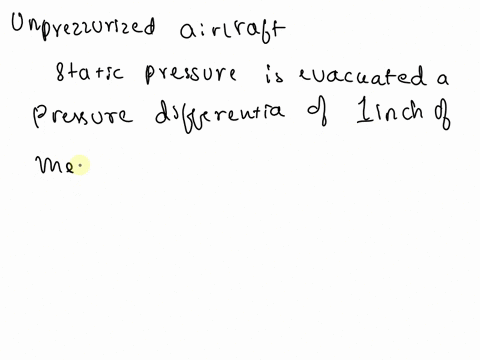 Unprezzurized airlraft
static pressure is evacuated a
pressure differentia of 1inch of
me